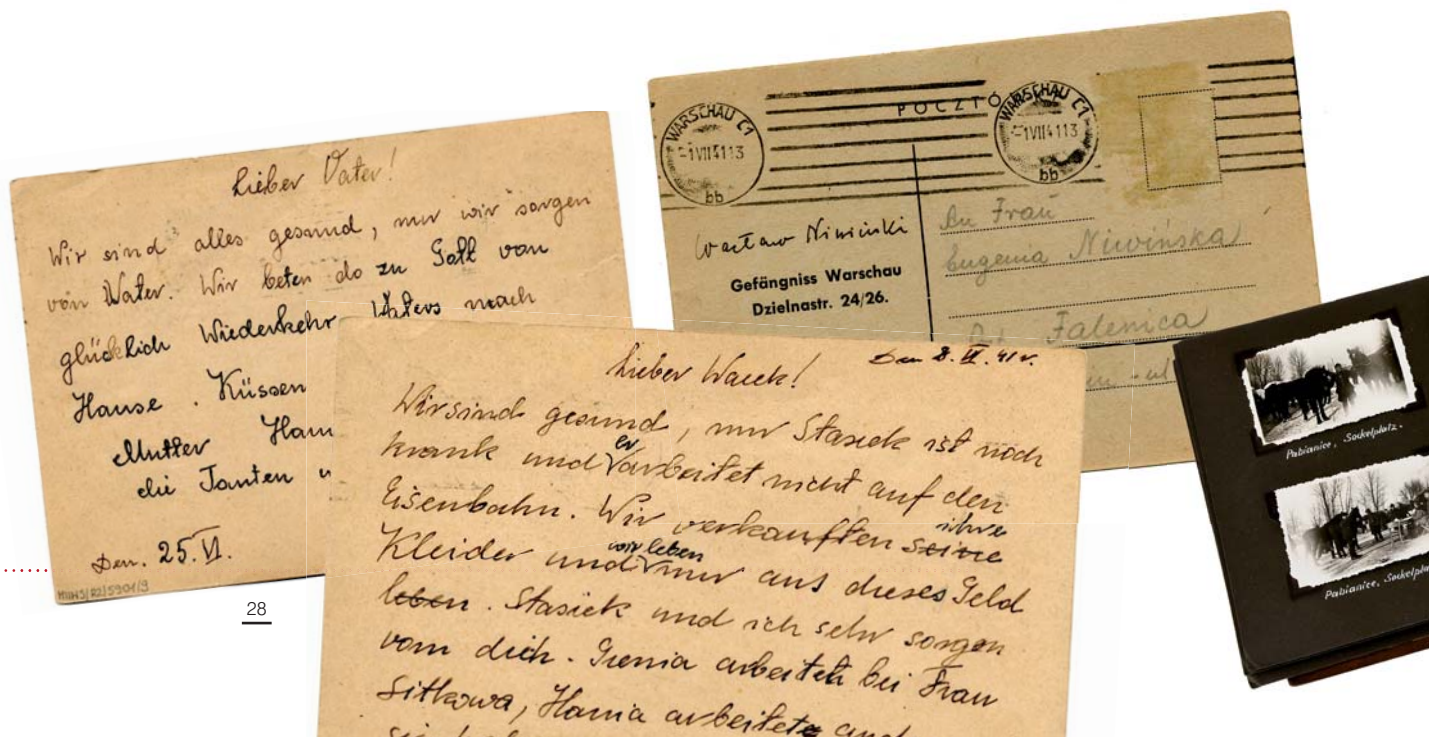 Lieber Vater!
Wir sind alles gesund, nur wir sorgen
von Vater. Wir beten do zu Gott von
glücklich Wiederkehr Vaters nach
Hause. Küssen
Mutter Han
die Tanten u
Den. 25.VI.
28
POCZTÓ
WARSCHAU C1
-1VII4113
bb
WARSCHAU C1
-1VII4113
bb
Wacław Niwiński
Gefängniss Warschau
Dzielnastr. 24/26.
An Frau
Eugenia Niwińska
Falenica
ul
Lieber Wacek!
Den 8. VI. 41 r.
Wir sind gesund, nur Stasiek ist noch
krank und er arbeitet nicht auf den
Eisenbahn. Wir verkauften seine ihre
Kleider und wir leben nur aus dieses Geld
leben. Stasiek und ich sehr sorgen
vom dich. Genia arbeitet bei Frau
Sitkowa, Hania arbeitete auch
Pabianice, Sockelplatz.
Pabianice, Sockelpla